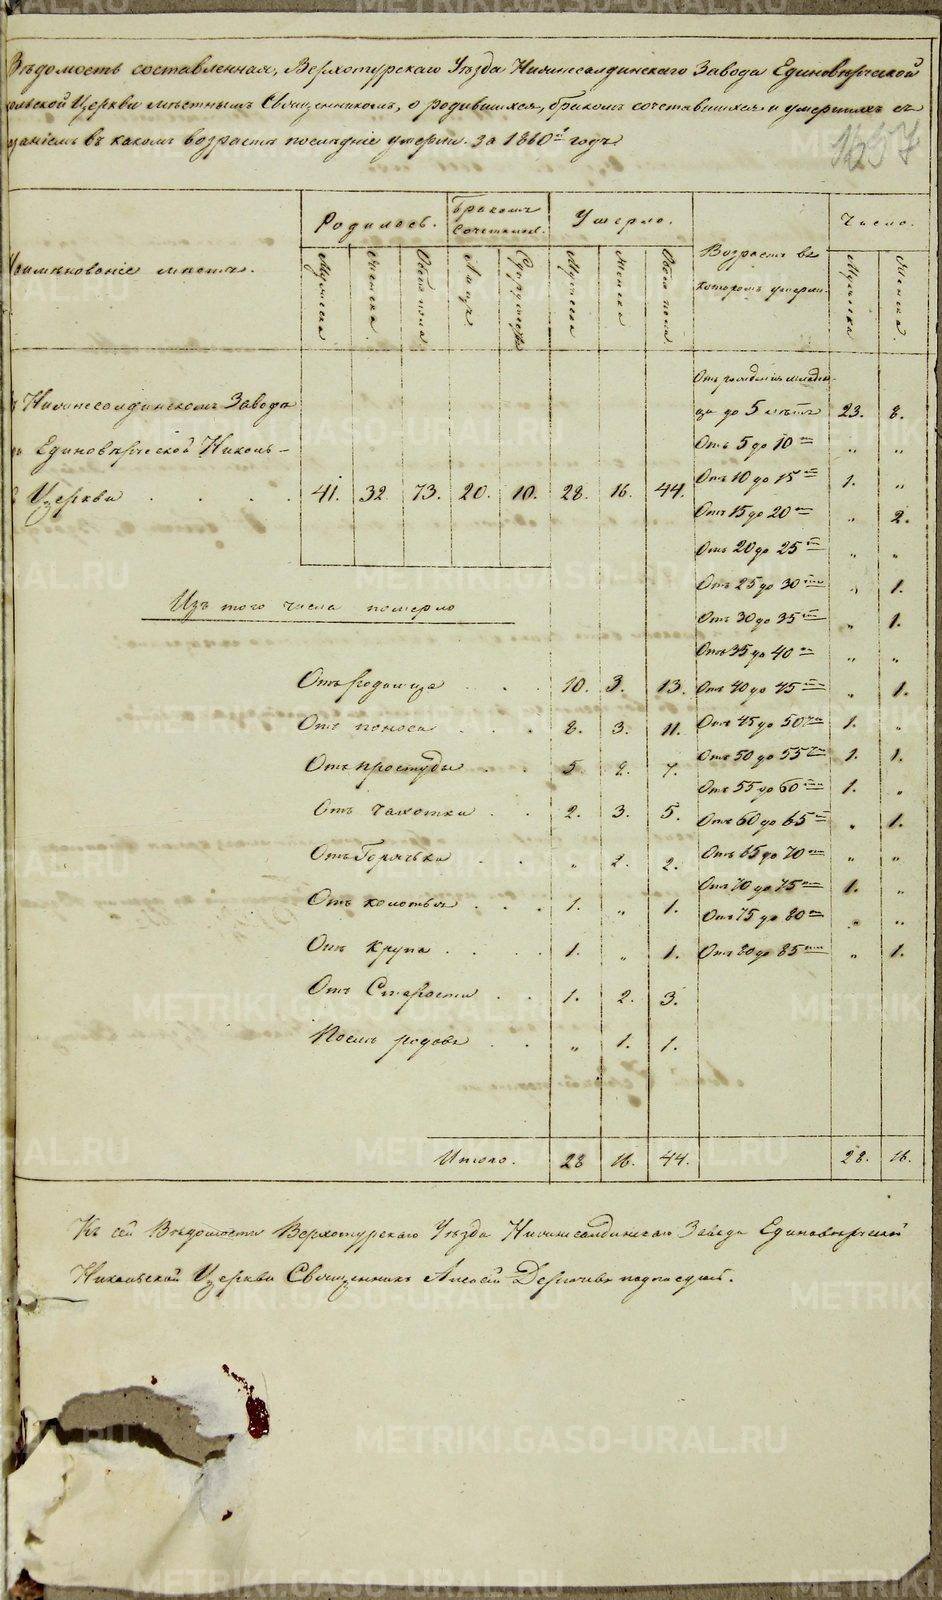 Вѣдомость составленная, Верхотурскаго Уѣзда Нижнесалдинскаго Завода Единовѣрческой
ольской Церкви мѣстнымъ Священникомъ, о родившихся, бракомъ сочетавшихся и умершихъ съ
заніемъ въ какомъ возрастѣ послѣдніе умерли. за 1860й годъ
1657
Наимѣнованіе мѣстъ.
Родилось.
Бракомъ Сочетались.
Умерло.
Возрастъ въ которомъ умерли.
Число.
Мужеска Женска Обоего пола Лицъ Супружествъ Мужеска Женска Обоего пола Мужеска Женска
Нижнесалдинскомъ Заводѣ
Единовѣрческой Николь-
Церкви . . . . 41. 32 73. 20. 10. 28. 16. 44.
Отъ рожденія младен-
ца до 5 лѣтъ 23. 8.
Отъ 5 до 10 „ „
Отъ 10 до 15 1. „
Отъ 15 до 20 „ 2.
Отъ 20 до 25 „ „
Отъ 25 до 30 „ 1.
Отъ 30 до 35 „ 1.
Отъ 35 до 40 „ „
Отъ 40 до 45 „ 1.
Отъ 45 до 50 1. „
Отъ 50 до 55 1. 1.
Отъ 55 до 60 1. „
Отъ 60 до 65 „ 1.
Отъ 65 до 70 „ „
Отъ 70 до 75 1. „
Отъ 75 до 80 „ „
Отъ 80 до 85 „ 1.
Изъ того числа померло
Отъ Родимца . . . 10. 3. 13.
Отъ поноса . . . 8. 3. 11.
Отъ простуды . . 5. 2. 7.
Отъ чахотки . . 2. 3. 5.
Отъ Горячки . . „ 2. 2.
Отъ колотья . . . 1. „ 1.
Отъ Крупа . . . . 1. „ 1.
Отъ Старости . . 1. 2. 3.
Послѣ родовъ . . „ 1. 1.
Итого. 28 16. 44. 28. 16.
Къ сей Вѣдомости Верхотурскаго Уѣзда Нижнесалдинскаго Завода Единовѣрческой
Никольской Церкви Священникъ Алексѣй Дерябинъ подписался.
METRIKI.GASO-URAL.RU